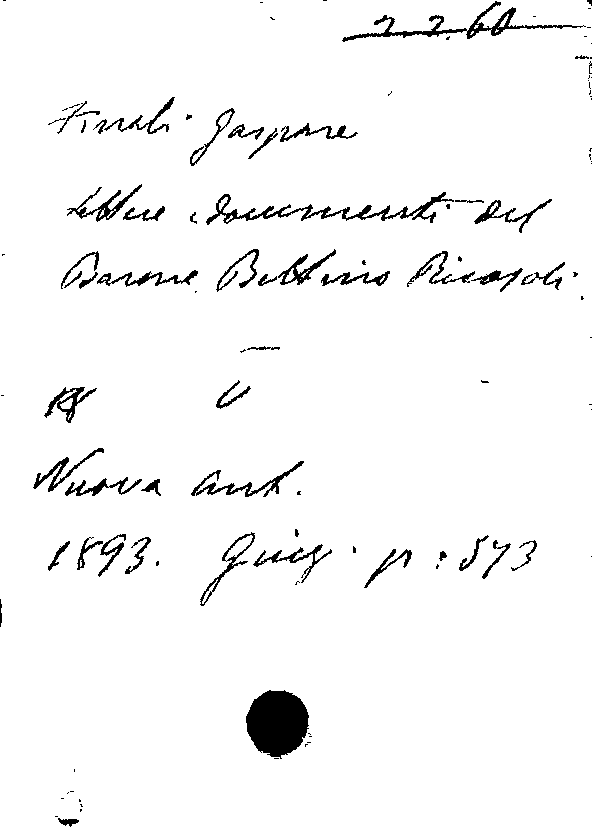 2.2.60
Finali Gaspare
Lettere e documenti del
Barone Bettino Ricasoli.
V
Nuova Ant.
1893. Giug. p: 573